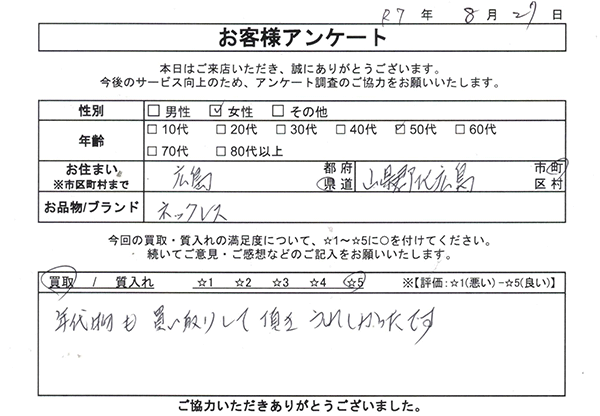 R7 年 8 月 27 日
お客様アンケート
本日はご来店いただき、誠にありがとうございます。
今後のサービス向上のため、アンケート調査のご協力をお願いいたします。
性別 □ 男性 ☑ 女性 □ その他
年齢 □ 10代 □ 20代 □ 30代 □ 40代 ☑ 50代 □ 60代
□ 70代 □ 80代以上
お住まい ※市区町村まで 広島 都 府 県 道 山県郡北広島 市 町 区 村
お品物/ブランド ネックレス
今回の買取・質入れの満足度について、☆1～☆5に○を付けてください。
続いてご意見・ご感想などのご記入をお願いいたします。
買取 / 質入れ ☆1 ☆2 ☆3 ☆4 ☆5 ※【評価:☆1(悪い)－☆5(良い)】
年代物も 買い取りして 頂き うれしかったです
ご協力いただきありがとうございました。